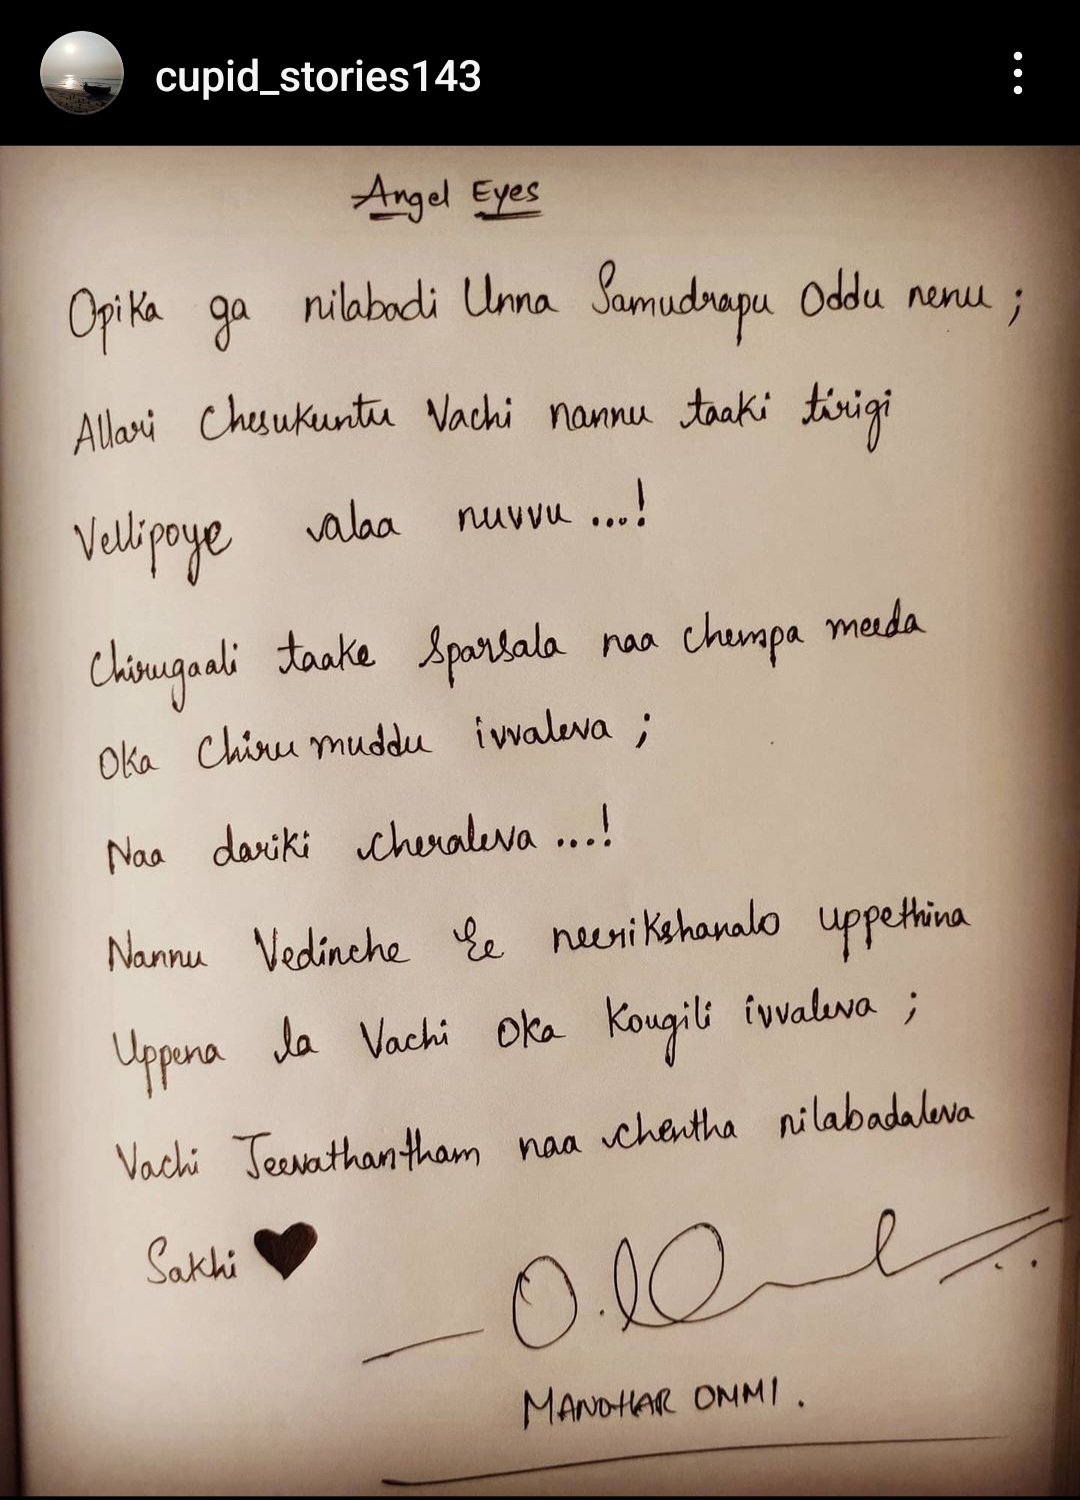 cupid_stories143
Angel Eyes
Opika ga nilabadi Unna Samudrapu Oddu nenu ;
Allari Chesukuntu Vachi nannu taaki tirigi
Vellipoye valaa nuvvu ...!
Chirugaali taake Sparsala naa chempa meeda
Oka Chiru muddu ivvaleva ;
Naa dariki cheraleva ...!
Nannu Vedinche Ee neerikshanalo uppethina
Uppena la Vachi Oka Kougili ivvaleva ;
Vachi Jeevathantham naa chentha nilabadaleva
Sakhi
MANOHAR OMMI .